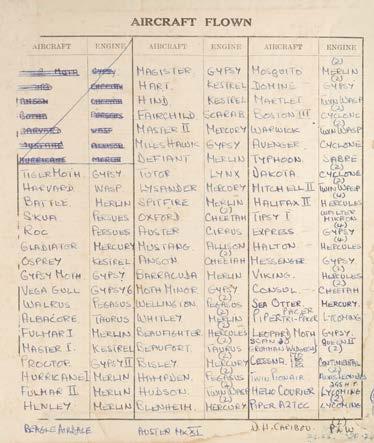 AIRCRAFT FLOWN
AIRCRAFT ENGINE AIRCRAFT ENGINE AIRCRAFT ENGINE
MOTH GYPSY MAGISTER GYPSY MOSQUITO (2) MERLIN
CHEETAH HART KESTREL DOMINE (2) GYPSY
ANSON CHEETAH HIND KESTREL MARTLET TWIN WASP
BOTHA PERSEUS FAIRCHILD SCARAB BOSTON III (2) CYCLONE
HARVARD WASP MASTER II MERCURY WARWICK (2) TWIN WASP
ALBION MILES HAWK GYPSY AVENGER CYCLONE
HURRICANE MERLIN DEFIANT MERLIN TYPHOON SABRE
TIGER MOTH GYPSY TUTOR LYNX DAKOTA (2) CYCLONE
HARVARD WASP LYSANDER MERCURY MITCHELL II (2) TWIN WASP
BATTLE MERLIN SPITFIRE MERLIN HALIFAX II (4) HERCULES
SKUA PERSUES OXFORD (2) CHEETAH TIPSY I WALTER MIKRON
ROC PERSUES AUSTER CIRRUS EXPRESS (4) GYPSY
GLADIATOR MERCURY MUSTANG ALLISON HALTON (4) HERCULES
OSPREY KESTREL ANSON (2) CHEETAH MESSENGER GYPSY
GYPSY MOTH GYPSY BARRACUDA MERLIN VIKING (2) HERCULES
VEGA GULL GYPSY 6 MOTH MINOR GYPSY CONSUL (2) CHEETAH
WALRUS PEGASUS WELLINGTON (2) PEGASUS SEA OTTER MERCURY
ALBACORE TAURUS WHITLEY (2) MERLIN P. PACER P. TRI-PACER LYCOMING
FULMAR I MERLIN BEAUFIGHTER (2) HERCULES LEOPARD MOTH GYPSY
MASTER I KESTREL BEAUFORT (2) TAURUS QUEEN II
PROCTOR GYPSY II BISLEY (2) MERCURY CESSNA CONTINENTAL
HURRICANE I MERLIN HAMPDEN (2) PEGASUS TWIN PIONAIR
FULMAR II MERLIN HUDSON (2) TWIN WASP HELIO COURIER LYCOMING
HENLEY MERLIN BLENHEIM (2) MERCURY PIPER AZTEC (2) LYCOMING
BEAGLE AIRDALE AUSTER MK XI D.H. CARIBOU (2) P & W